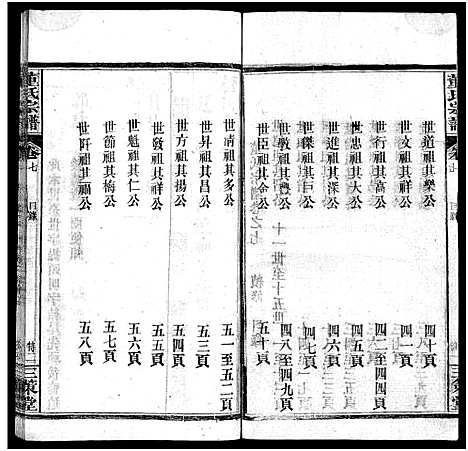 董氏宗譜
卷七
目錄
三策堂
世道祖其樂公 四十頁
世高祖其祥公 四一頁
世行祖其富公 四二至四四頁
世忠祖其大公 四五頁
世進祖其深公 四六頁
世傑祖其巨公 四七頁
世教祖其豊公 四八至四九頁
世臣祖其金公 五十頁
世清祖其多公 五一至五二頁
世昇祖其昌公 五三頁
世方祖其揚公 五四頁
世敦祖其祥公 五五頁
世魁祖其仁公 五六頁
世節祖其梅公 五七頁
世階祖其福公 五八頁
董氏宗譜
卷七
目錄
三策堂